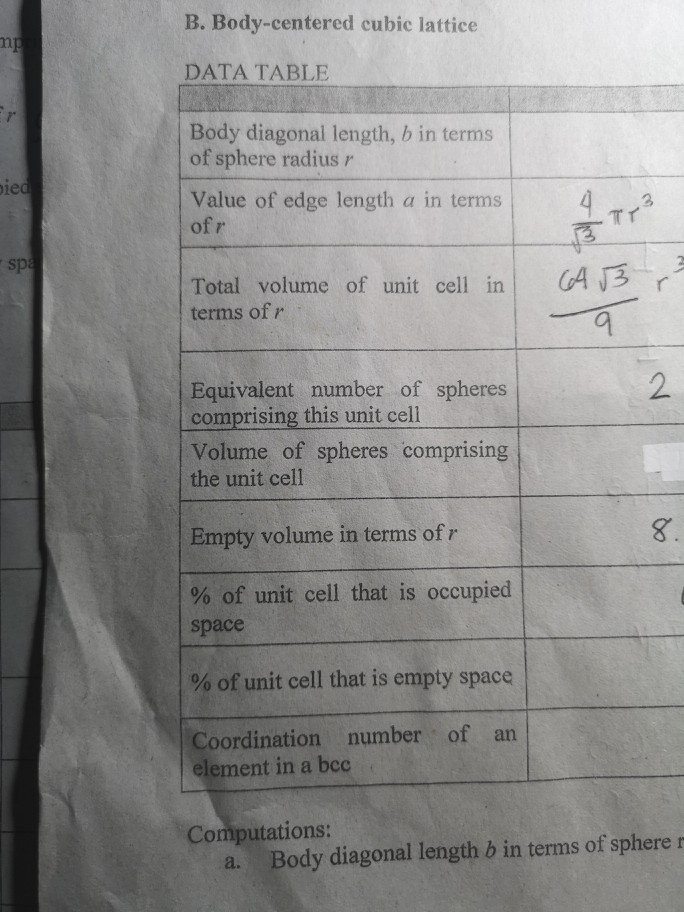 B. Body-centered cubic lattice
DATA TABLE
Body diagonal length, b in terms
of sphere radius r
Value of edge length a in terms
of r
4/√3 πr³
Total volume of unit cell in
terms of r
64√3/9 r³
Equivalent number of spheres
comprising this unit cell
2
Volume of spheres comprising
the unit cell
Empty volume in terms of r
8.
% of unit cell that is occupied
space
% of unit cell that is empty space
Coordination number of an
element in a bcc
Computations:
a. Body diagonal length b in terms of sphere